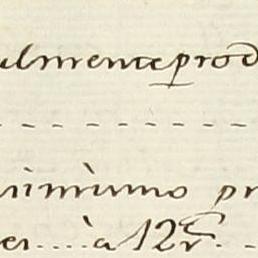 ulmente prod
- - - - - - - -
inimumo pr
er....à 12 r. -